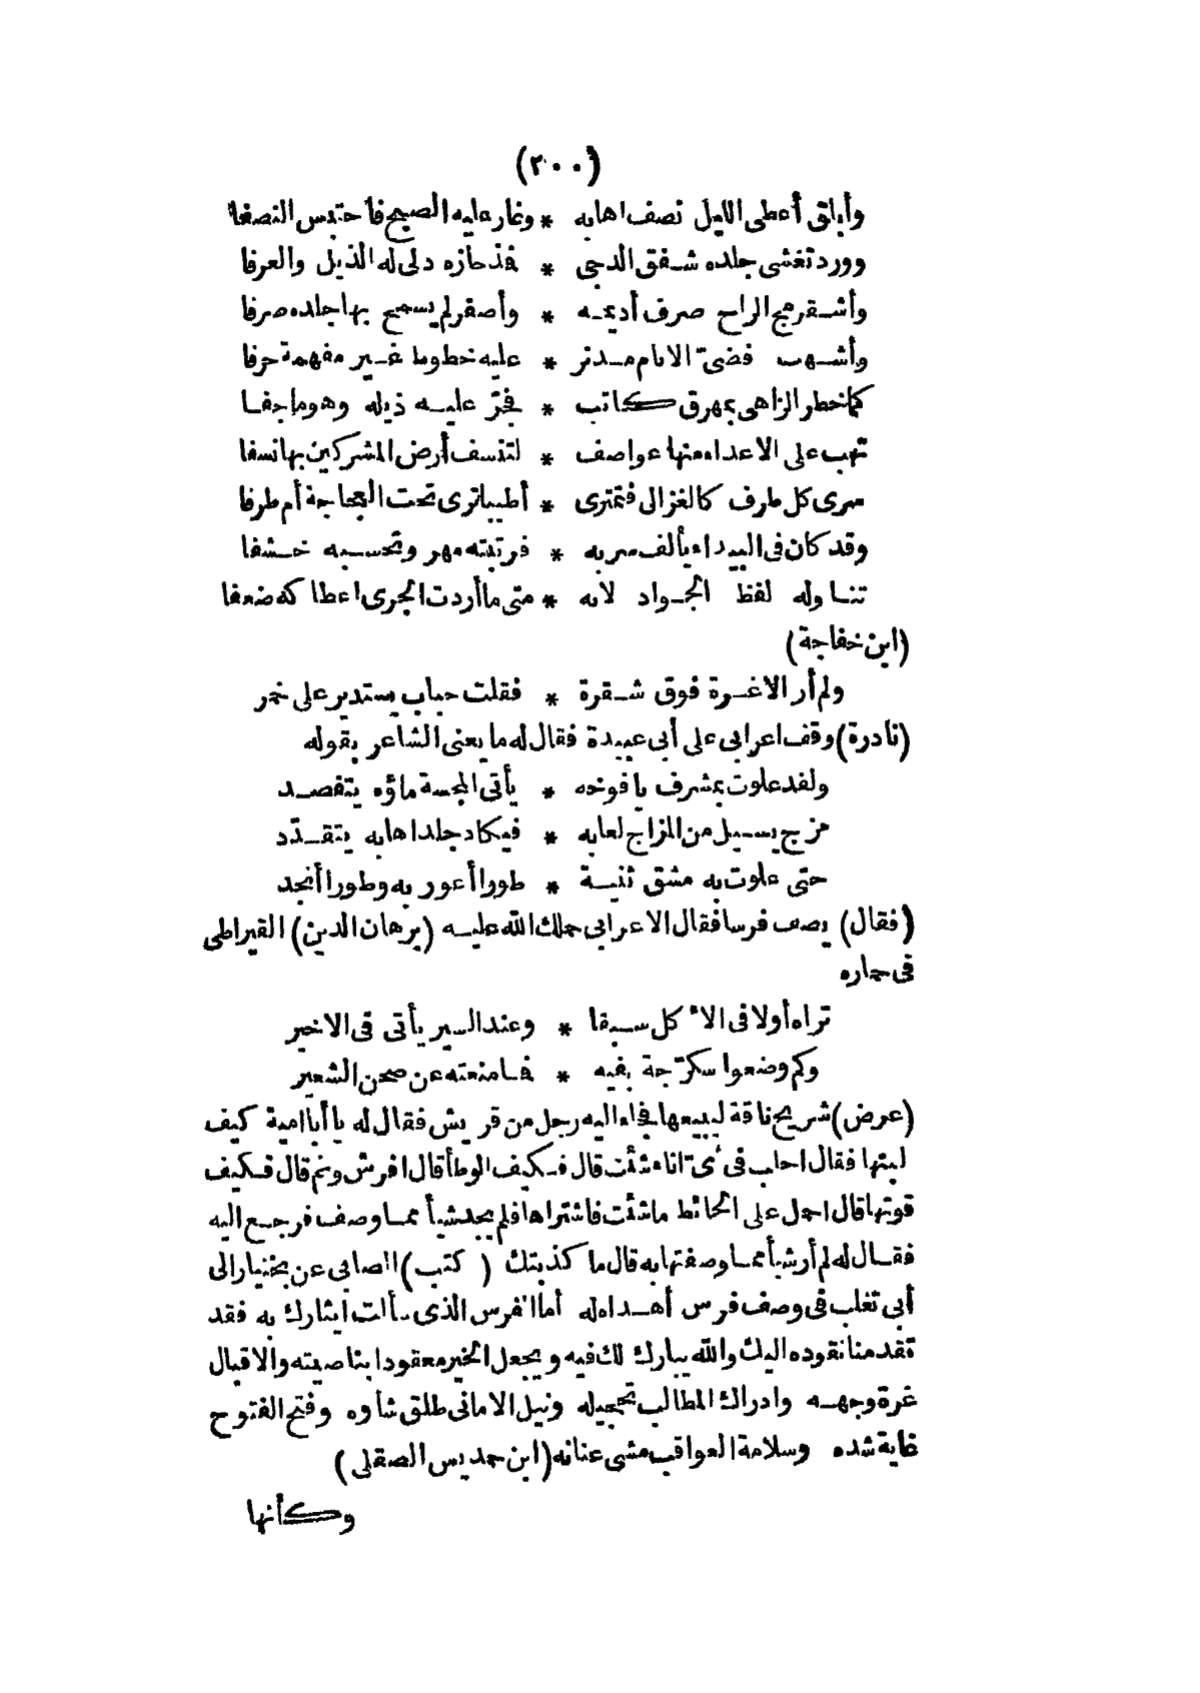 (٢٠٠)
وأبلق أعطى الليل نصف اهابه * وغار عليه الصبح فاحتبس النصفا
وورد تغشى جلده شفق الدجى * فذ حازه دلى له الذيل والعرفا
وأشقر مج الراح صرف أديمه * وأصفر لم يسمح بها جلده صرفا
وأشهب فضىّ الاديم مدنر * عليه خطوط غير مفهمة حرفا
كما خطر الزاهى بمهرق كاتب * فجرّ عليه ذيله وهو ما جفا
تهب على الاعداء منها عواصف * لتنسف أرض المشركين بها نسفا
سرى كل طرف كالغزال فتمترى * أظبيا ترى تحت العجاجة أم طرفا
وقد كان فى البيداء يألف سربه * فرتبته مهر وتحسبه خشفا
تناوله لفظ الجواد لانه * متى ما أردت الجرى اعطا كه ضعفا
(ابن خفاجة)
ولم أر الا غرة فوق شقرة * فقلت حباب يستدير على خمر
(نادرة) وقف اعرابى على أبى عبيدة فقال له ما يعنى الشاعر بقوله
ولقد علوت بمشرف يافوخه * يأتى المجسة ماؤه يتفصد
مزج يسيل من المزاج لعابه * فيكاد جلد اهابه يتقدّد
حتى علوت به مشق ثنية * طورا أعور به وطورا أنجد
(فقال) يصف فرسا فقال الاعرابى حملك الله عليه (برهان الدين) القيراطى
فى حماره
تراه أولا فى الاكل سبقا * وعند السير يأتى فى الاخير
وكم وضعوا سكرّجة بفيه * فما منعته عن صحن الشعير
(عرض) شريح ناقة ليبيعها فجاء اليه رجل من قريش فقال له يا أبا امية كيف
لبنها فقال احلب فى أىّ اناء شئت قال فكيف الوطأ قال افرش ونم قال فكيف
قوتها قال احمل على الحائط ما شئت فاشتراها فلم يجد شيأ مما وصف فرجع اليه
فقال له لم أر شيأ مما وصفتها به قال ما كذبتك (كتب) الصابى عن بختيار الى
أبى تغلب فى وصف فرس أهداه له أما الفرس الذى سألت ايثارك به فقد
تقدمنا نقوده اليك والله يبارك لك فيه ويجعل الخير معقودا بناصيته والاقبال
غرة وجهه وادراك المطالب تحجيله ونيل الامانى طلق شأوه وفتح الفتوح
غاية شده وسلامة العواقب مثنى عنانه (ابن حمديس الصقلى)
وكأنها